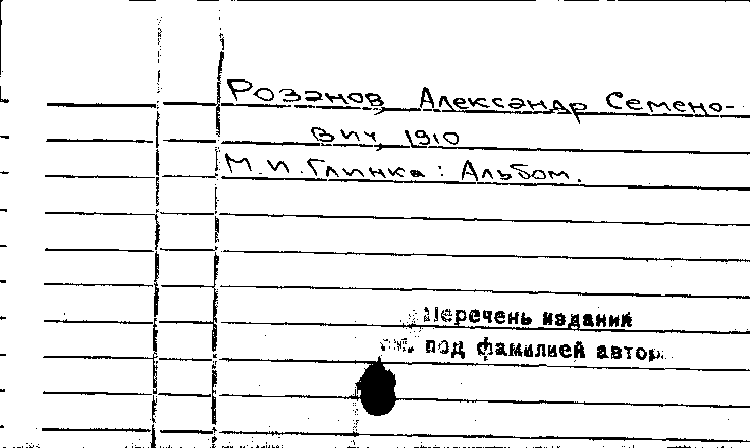 Розанов, Александр Семено-
вич, 1910
М.И.Глинка: Альбом.
Перечень изданий
см. под фамилией автор